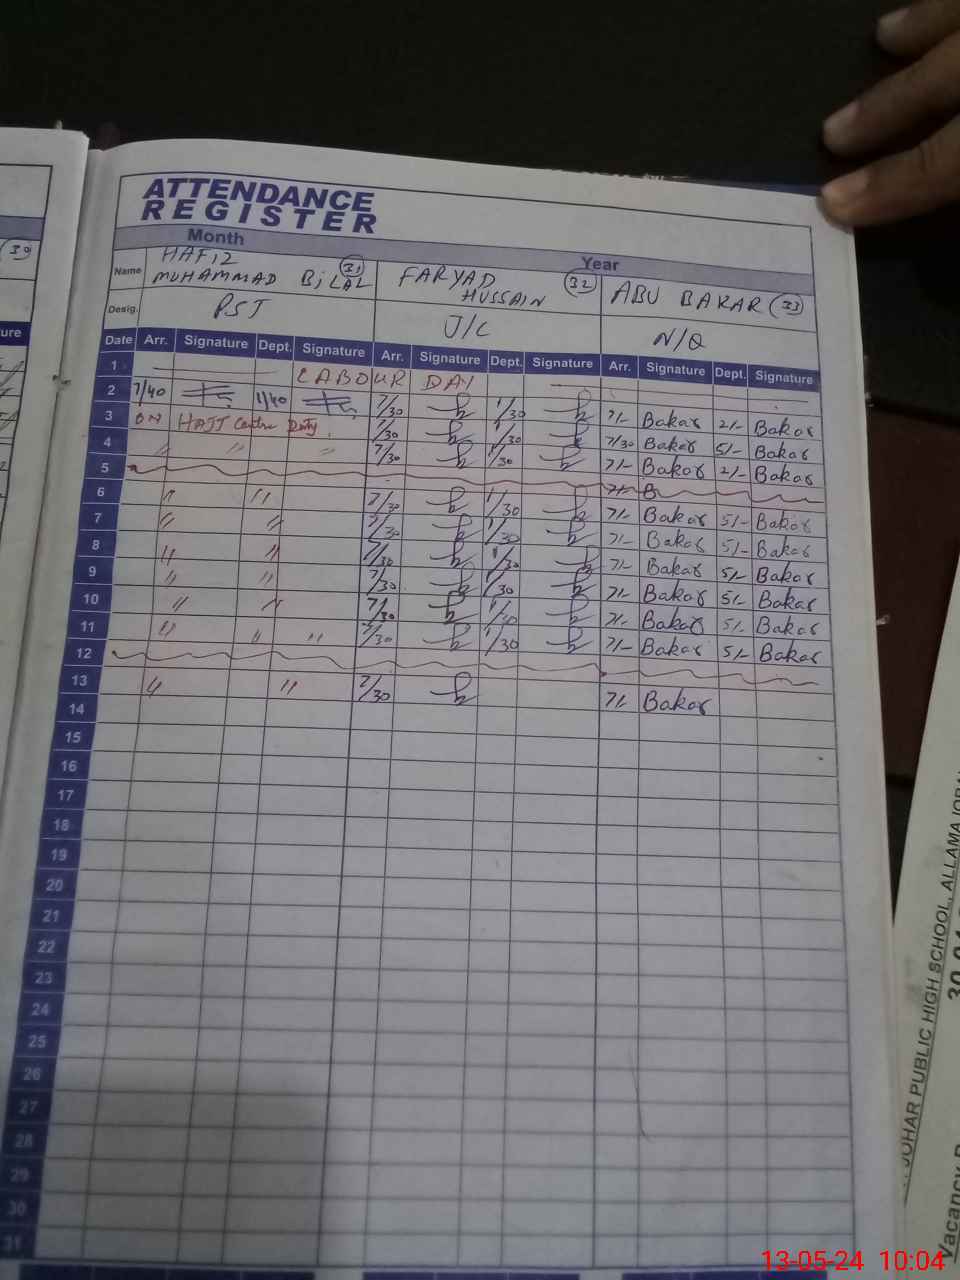 ATTENDANCE
REGISTER
Month
Year
Name HAFIZ MUHAMMAD BiLAL (31) FARYAD HUSSAIN (32) ABU BAKAR (33)
Desig. PST J/C N/Q
Date Arr. Signature Dept. Signature Arr. Signature Dept. Signature Arr. Signature Dept. Signature
1 LABOUR DAY
2 7/40 1/40 7/30 1/30 7/- Bakar 2/- Bakar
3 ON HAJJ Centre Duty. 7/30 1/30 7/30 Bakar 5/- Bakar
4 " " " 7/30 1/30 7/- Bakar 2/- Bakar
5 7/- B
6 " " 7/30 1/30 7/- Bakar 5/- Bakar
7 " " 7/30 1/30 7/- Bakar 5/- Bakar
8 " " 7/30 1/30 7/- Bakar 5/- Bakar
9 " " 7/30 1/30 7/- Bakar 5/- Bakar
10 " " 7/30 7/- Bakar 5/- Bakar
11 " " " 7/30 1/30 7/- Bakar 5/- Bakar
12
13 " " 7/30 7/- Bakar
14
15
16
17
18
19
20
21
22
23
24
25
26
27
28
29
30
31
(30)
ure
JOHAR PUBLIC HIGH SCHOOL, ALLAMA IQBAL
Vacancy
13-05-24 10:04